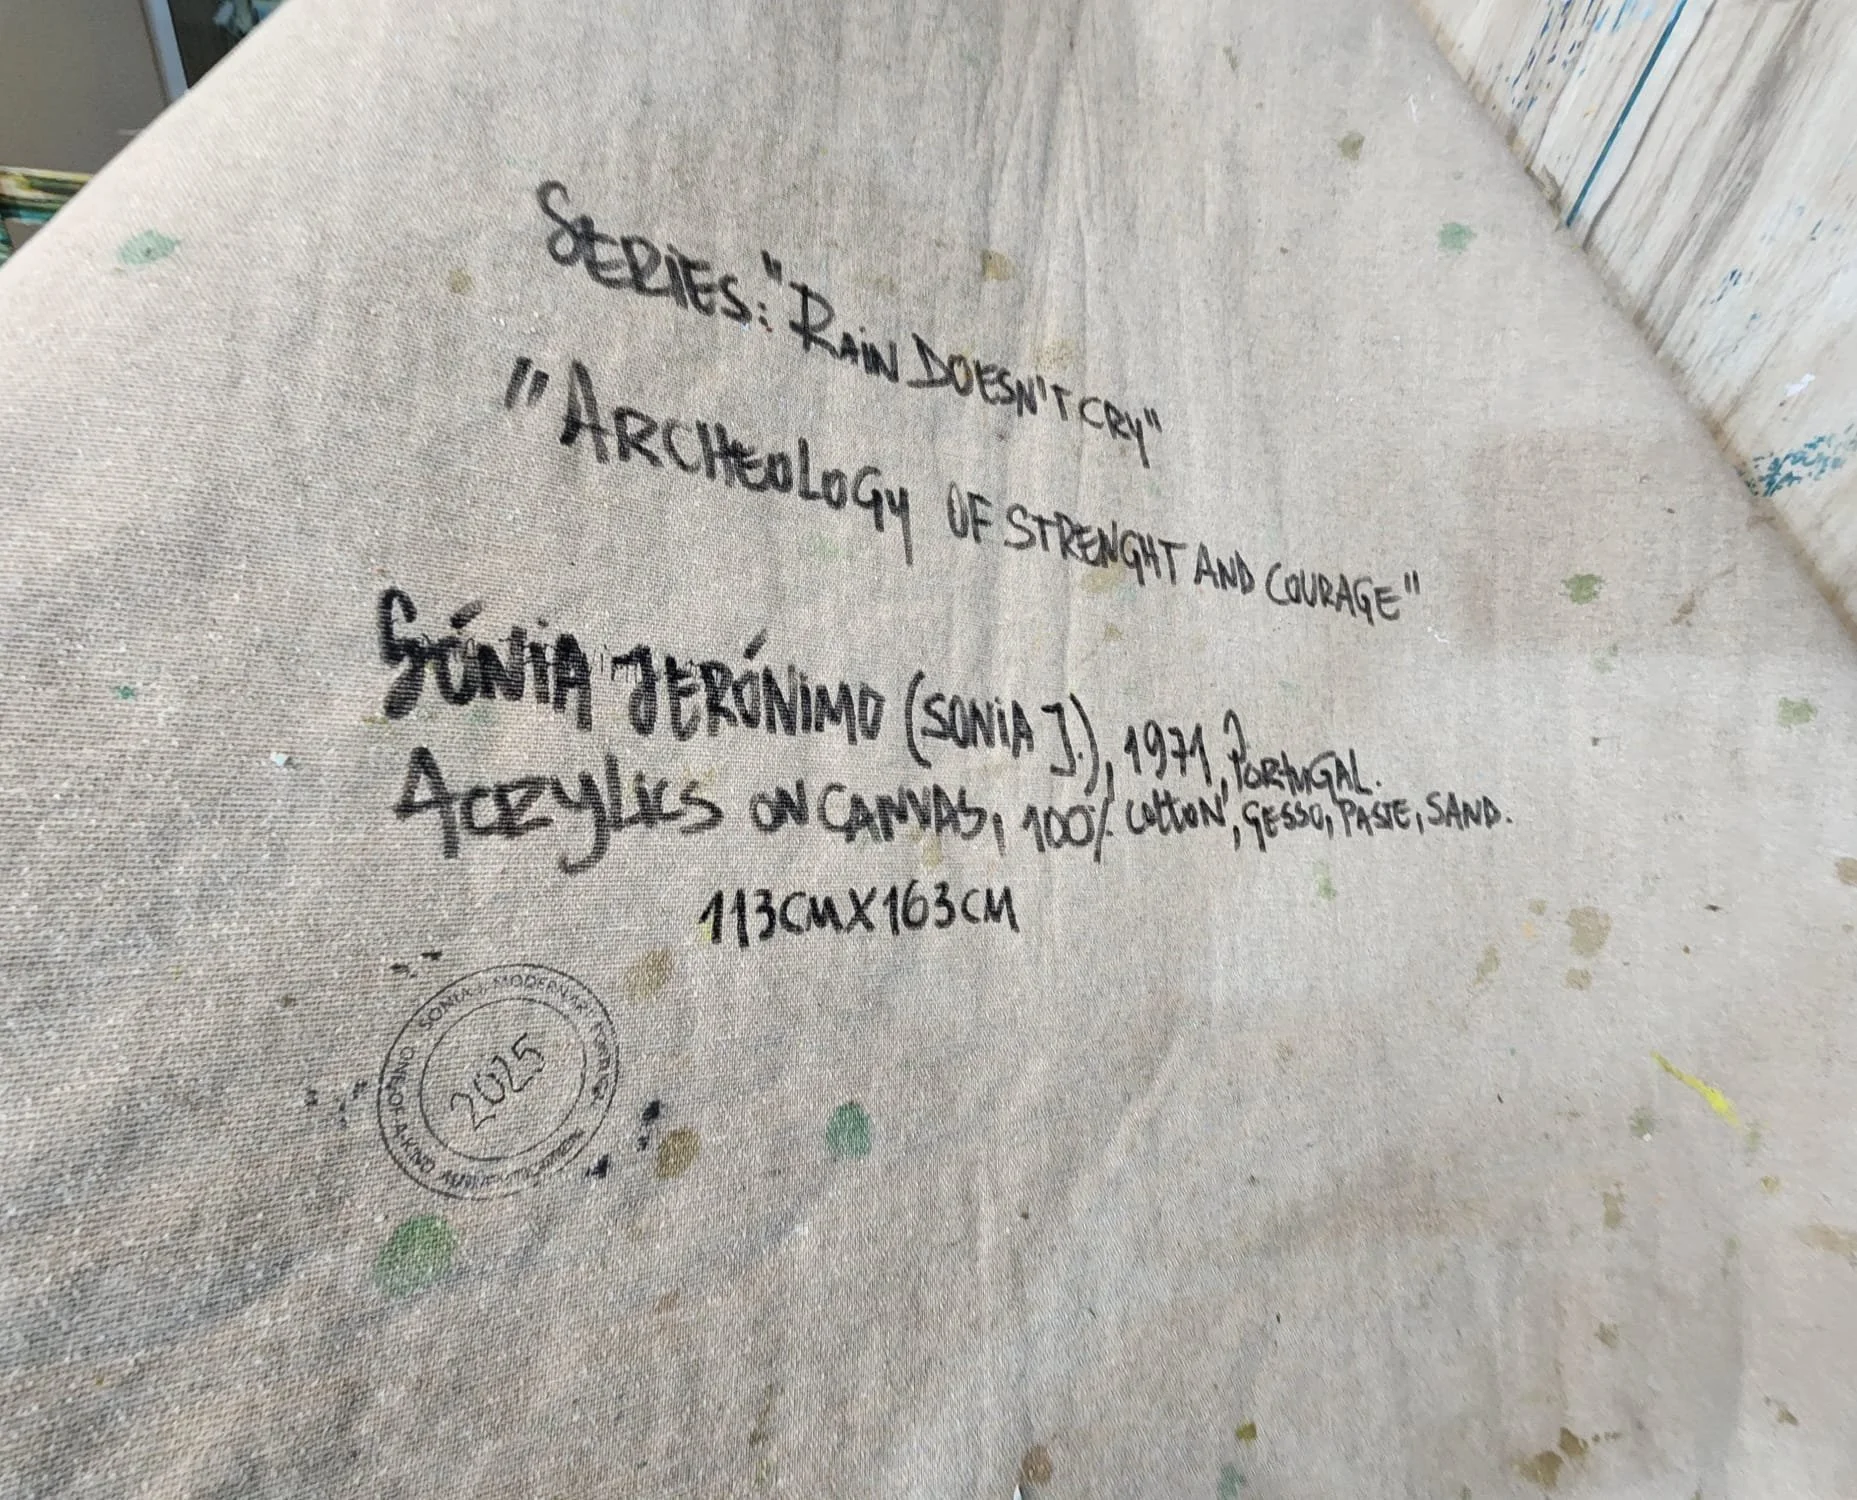 SERIES: "RAIN DOESN'T CRY"
"ARCHEOLOGY OF STRENGHT AND COURAGE"
SÓNIA JERÓNIMO (SONIA J.), 1971, PORTUGAL.
ACRYLICS ON CANVAS, 100% COTTON, GESSO, PASTE, SAND.
113CMX163CM
ONE-OF-A-KIND SONIA J MODERN ART PORTUGAL
2025